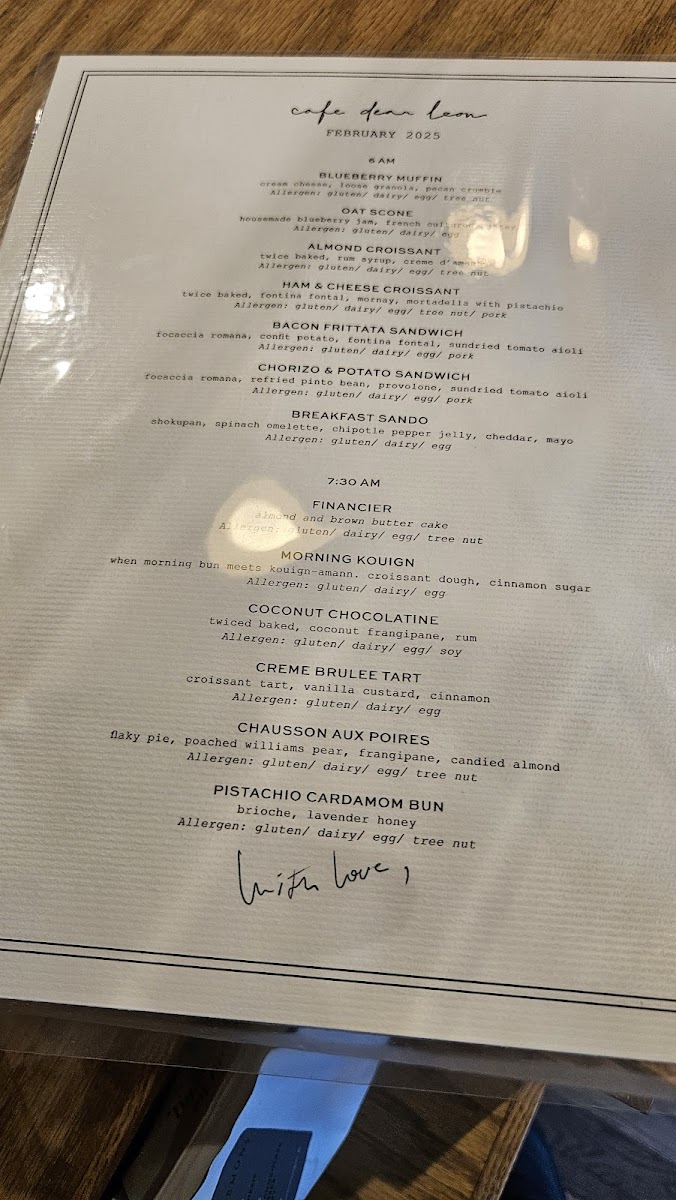 cafe dear leon
FEBRUARY 2025
6 AM
BLUEBERRY MUFFIN
cream cheese, loose granola, pecan crumble
Allergen: gluten/ dairy/ egg/ tree nut
OAT SCONE
housemade blueberry jam, french cultured
Allergen: gluten/ dairy/ egg
ALMOND CROISSANT
twice baked, rum syrup, creme
Allergen: gluten/ dairy/ egg/ tree nut
HAM & CHEESE CROISSANT
twice baked, fontina fontal, mornay, mortadella with pistachio
Allergen: gluten/ dairy/ egg/ tree nut/ pork
BACON FRITTATA SANDWICH
focaccia romana, confit potato, fontina fontal, sundried tomato aioli
Allergen: gluten/ dairy/ egg/ pork
CHORIZO & POTATO SANDWICH
focaccia romana, refried pinto bean, provolone, sundried tomato aioli
Allergen: gluten/ dairy/ egg/ pork
BREAKFAST SANDO
shokupan, spinach omelette, chipotle pepper jelly, cheddar, mayo
Allergen: gluten/ dairy/ egg
7:30 AM
FINANCIER
almond and brown butter cake
Allergen: gluten/ dairy/ egg/ tree nut
MORNING KOUIGN
when morning bun meets kouign-amann. croissant dough, cinnamon sugar
Allergen: gluten/ dairy/ egg
COCONUT CHOCOLATINE
twiced baked, coconut frangipane, rum
Allergen: gluten/ dairy/ egg/ soy
CREME BRULEE TART
croissant tart, vanilla custard, cinnamon
Allergen: gluten/ dairy/ egg
CHAUSSON AUX POIRES
flaky pie, poached williams pear, frangipane, candied almond
Allergen: gluten/ dairy/ egg/ tree nut
PISTACHIO CARDAMOM BUN
brioche, lavender honey
Allergen: gluten/ dairy/ egg/ tree nut
With love,